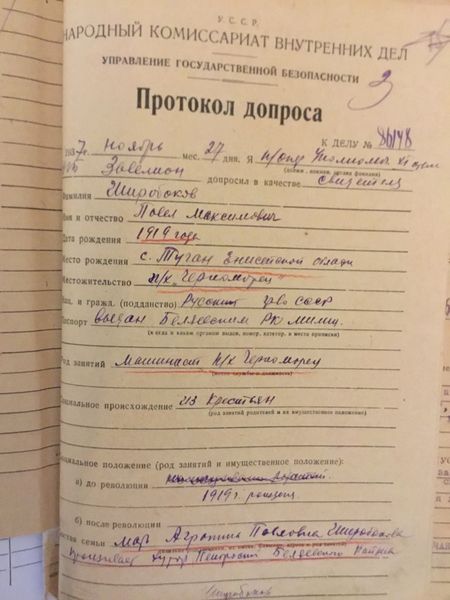 У.С.С.Р.
НАРОДНЫЙ КОМИССАРИАТ ВНУТРЕННИХ ДЕЛ
УПРАВЛЕНИЕ ГОСУДАРСТВЕННОЙ БЕЗОПАСНОСТИ
Протокол допроса
К ДЕЛУ № 86148
1937 г. ноябрь мес. 27 дня. Я
допросил в качестве свидетеля
Фамилия Широбоков
Имя и отчество Павел Максимович
Дата рождения 1919 года
Место рождения с. Туган Енисейской
Местожительство п/х Черноморец
Нац. и гражд. (подданство) Русский гр-во СССР
Паспорт выдан Беляевским РК Милиц.
Род занятий Машинист п/х Черноморец
(место службы и должность)
Социальное происхождение Из Крестьян
(род занятий родителей и их имущественное положение)
Социальное положение (род занятий и имущественное положение):
а) до революции
1919 г. рожден
б) после революции
Состав семьи Агрипина Павловна Широбокова
Проживает хутор Беляевского Района
Широбоков